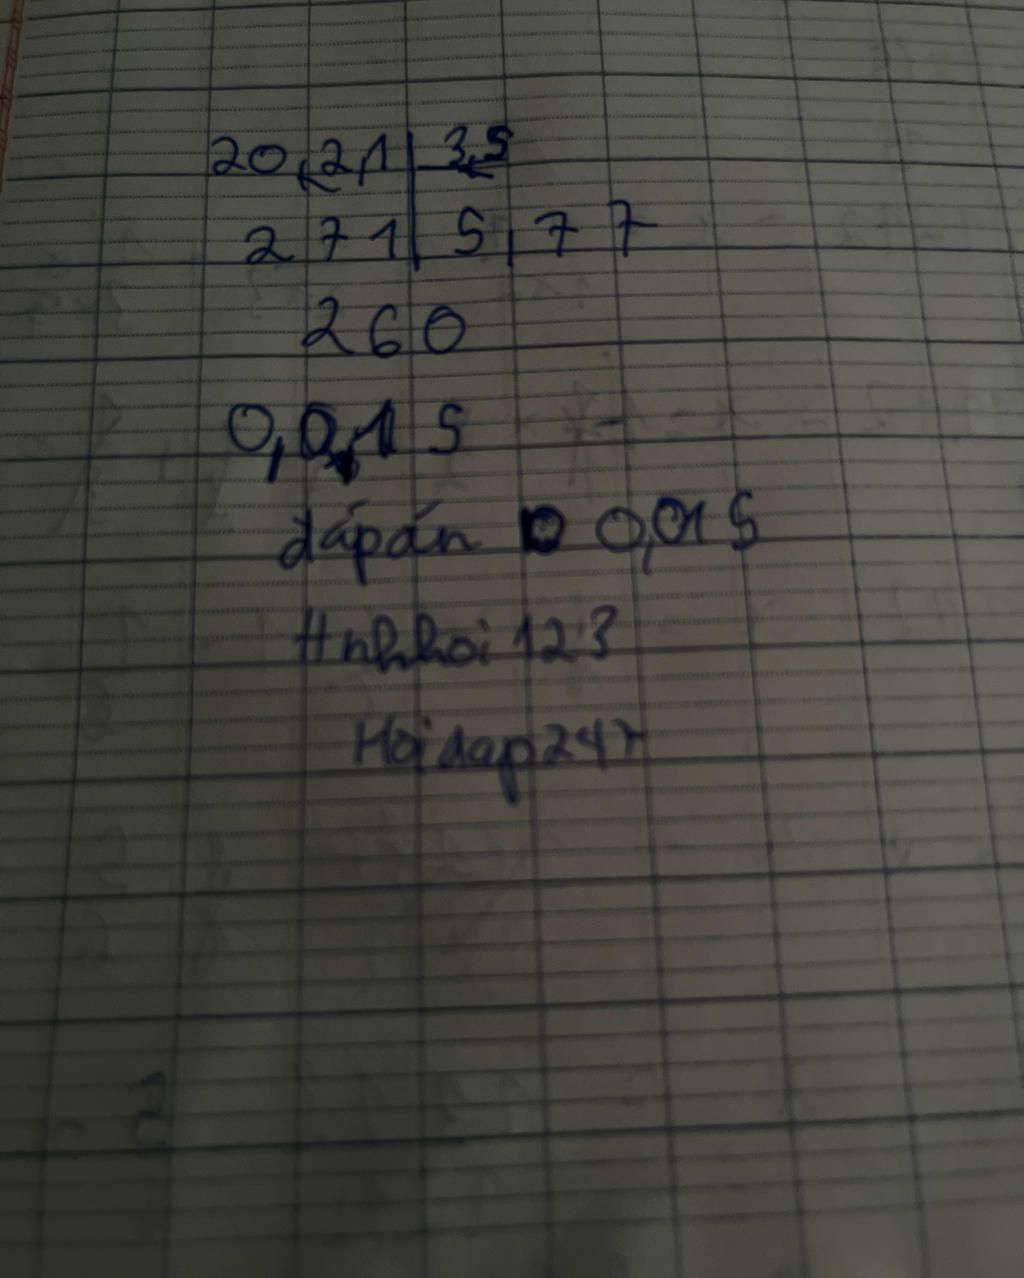 20,2,1 3,5
271 5,77
260
0,0,15
đáp án D 0,015
#nhhoi123
Hoidap247